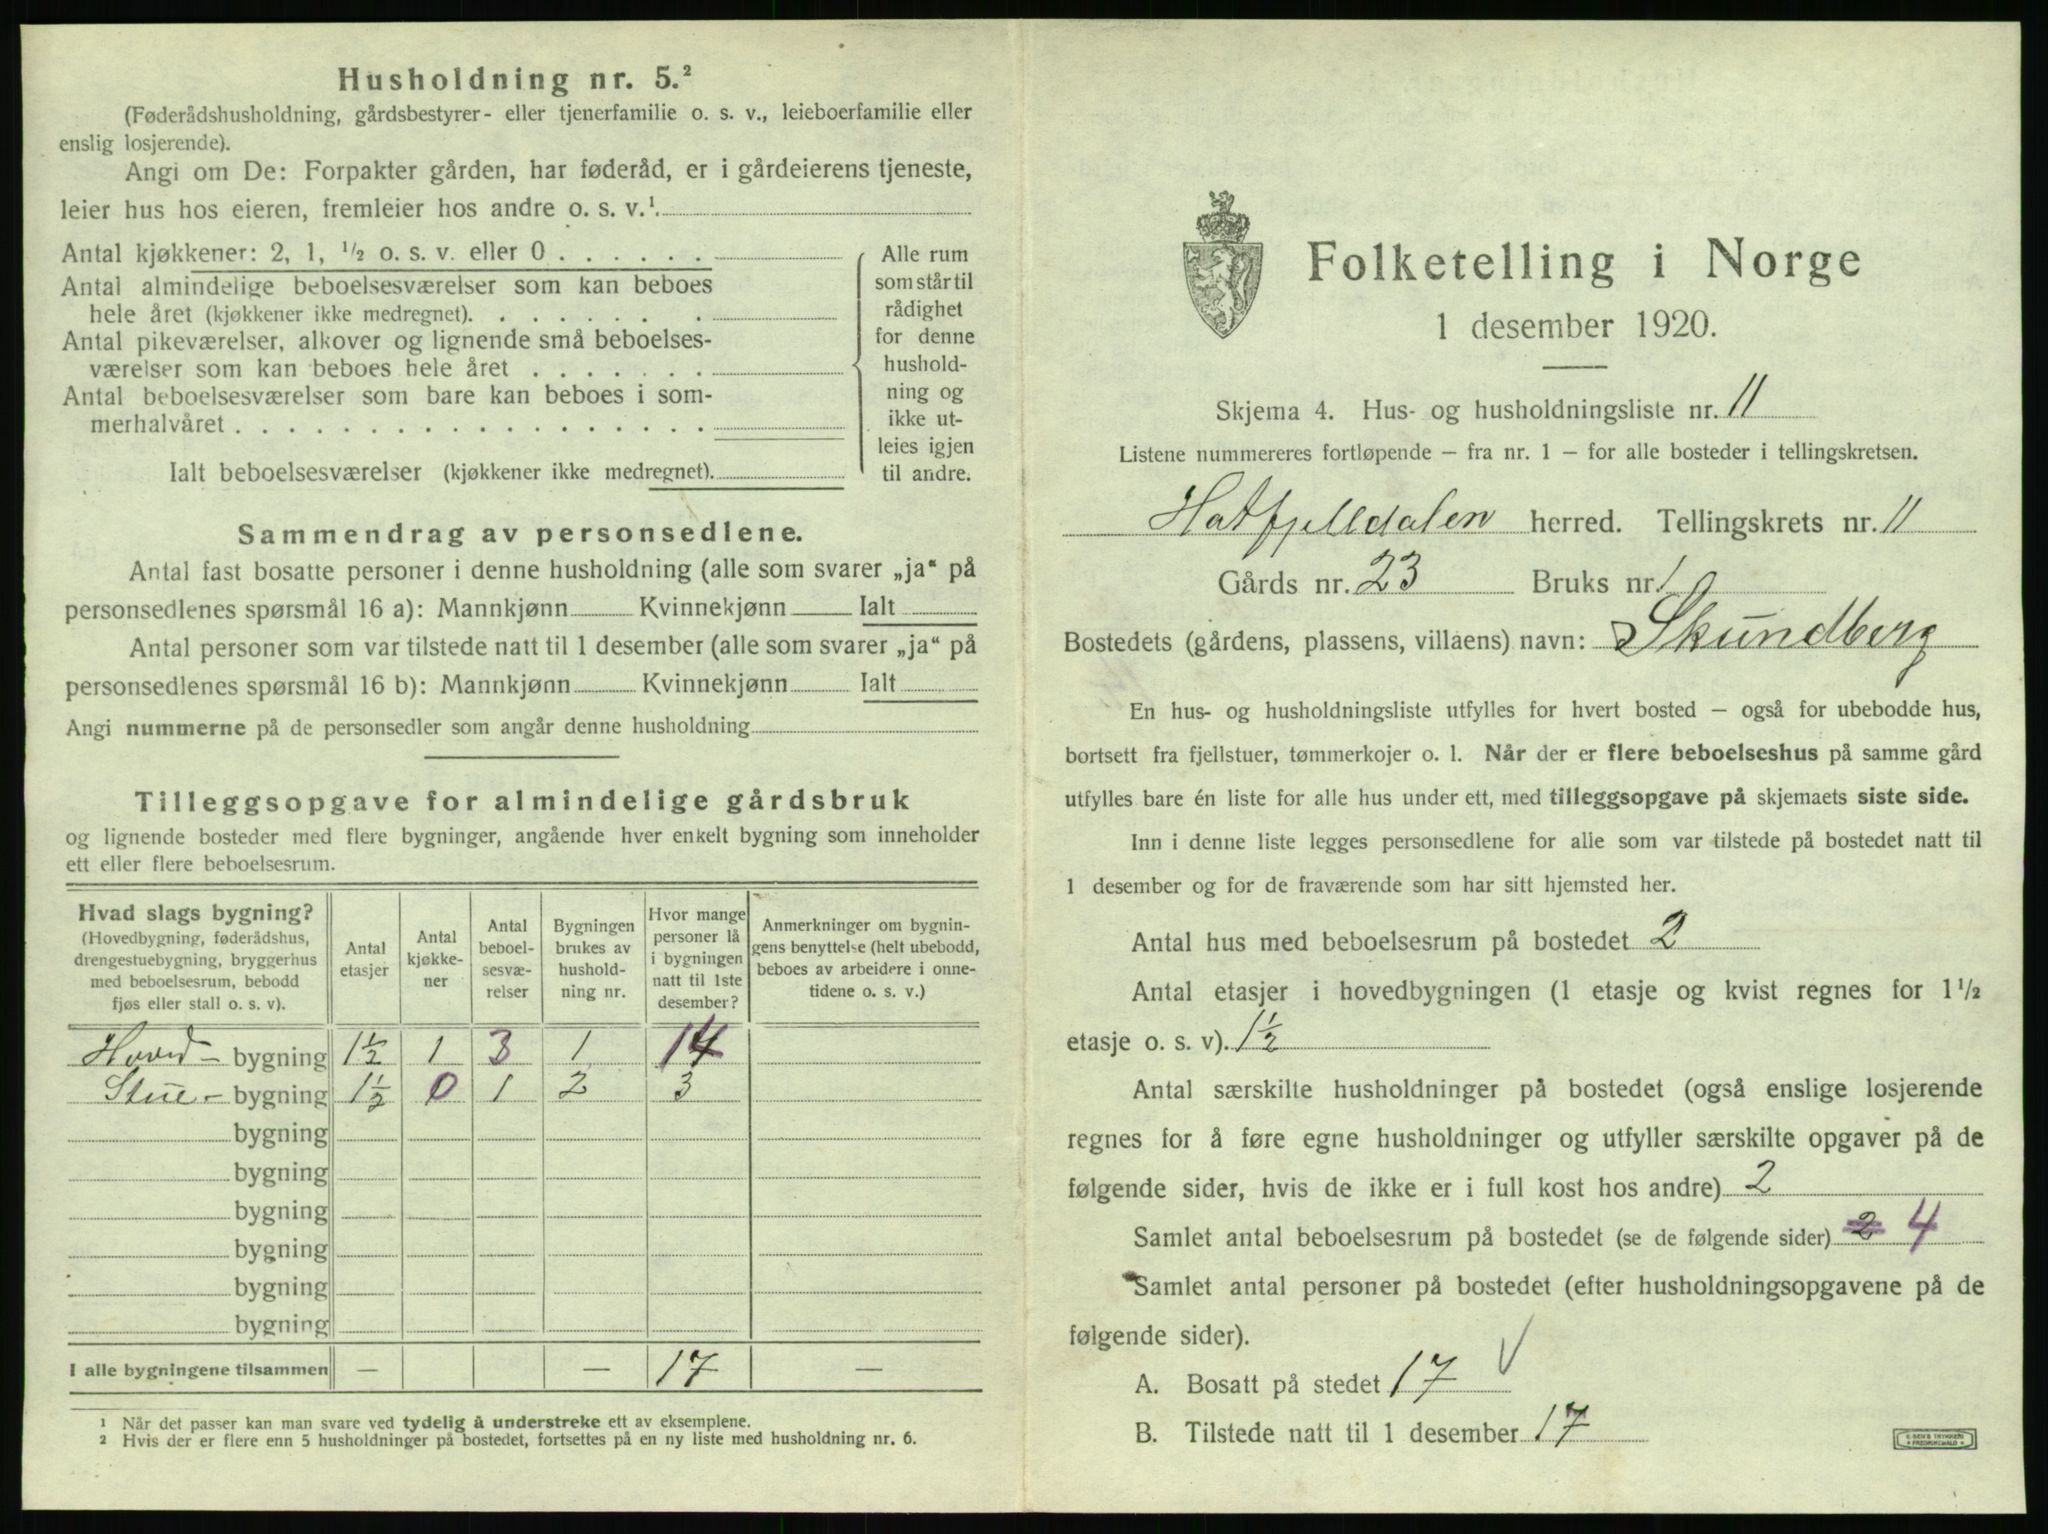 Husholdning nr. 5.²
(Føderådshusholdning, gårdsbestyrer- eller tjenerfamilie o. s. v., leieboerfamilie eller
enslig losjerende).
Angi om De: Forpakter gården, har føderåd, er i gårdeierens tjeneste,
leier hus hos eieren, fremleier hos andre o. s. v.¹.
Antal kjøkkener: 2, 1, ½ o. s. v. eller 0 . . . . . .
Antal almindelige beboelsesværelser som kan beboes
hele året (kjøkkener ikke medregnet). . . . . . . .
Antal pikeværelser, alkover og lignende små beboelses-
værelser som kan beboes hele året . . . . . . .
Antal beboelsesværelser som bare kan beboes i som-
merhalvåret . . . . . . . . . . . . . . . . . .
Ialt beboelsesværelser (kjøkkener ikke medregnet).
Alle rum
som står til
rådighet
for denne
hushold-
ning og
ikke ut-
leies igjen
til andre.
Sammendrag av personsedlene.
Antal fast bosatte personer i denne husholdning (alle som svarer „ja“ på
personsedlenes spørsmål 16 a): Mannkjønn Kvinnekjønn Ialt
Antal personer som var tilstede natt til 1 desember (alle som svarer „ja“ på
personsedlenes spørsmål 16 b): Mannkjønn Kvinnekjønn Ialt
Angi nummerne på de personsedler som angår denne husholdning
Tilleggsopgave for almindelige gårdsbruk
og lignende bosteder med flere bygninger, angående hver enkelt bygning som inneholder
ett eller flere beboelsesrum.
Hvad slags bygning?
(Hovedbygning, føderådshus,
drengestuebygning, bryggerhus
med beboelsesrum, bebodd
fjøs eller stall o. s. v).
Antal
etasjer
Antal
kjøkke-
ner
Antal
beboel-
sesvæ-
relser
Bygningen
brukes av
hushold-
ning nr.
Hvor mange
personer lå
i bygningen
natt til 1ste
desember?
Anmerkninger om bygnin-
gens benyttelse (helt ubebodd,
beboes av arbeidere i onne-
tidene o. s. v.)
Hoved- bygning 1½ 1 3 1 14
Stue- bygning 1½ 0 1 2 3
bygning
bygning
bygning
bygning
bygning
bygning
I alle bygningene tilsammen — — 17 —
¹ Når det passer kan man svare ved tydelig å understreke ett av eksemplene.
² Hvis der er flere enn 5 husholdninger på bostedet, fortsettes på en ny liste med husholdning nr. 6.
Folketelling i Norge
1 desember 1920.
Skjema 4. Hus- og husholdningsliste nr. 11
Listene nummereres fortløpende – fra nr. 1 – for alle bosteder i tellingskretsen.
Hatfjelldalen herred. Tellingskrets nr. 11
Gårds nr. 23 Bruks nr. 1
Bostedets (gårdens, plassens, villaens) navn: Skundberg
En hus- og husholdningsliste utfylles for hvert bosted – også for ubebodde hus,
bortsett fra fjellstuer, tømmerkojer o. l. Når der er flere beboelseshus på samme gård
utfylles bare én liste for alle hus under ett, med tilleggsopgave på skjemaets siste side.
Inn i denne liste legges personsedlene for alle som var tilstede på bostedet natt til
1 desember og for de fraværende som har sitt hjemsted her.
Antal hus med beboelsesrum på bostedet 2
Antal etasjer i hovedbygningen (1 etasje og kvist regnes for 1½
etasje o. s. v). 1½
Antal særskilte husholdninger på bostedet (også enslige losjerende
regnes for å føre egne husholdninger og utfyller særskilte opgaver på de
følgende sider, hvis de ikke er i full kost hos andre) 2
Samlet antal beboelsesrum på bostedet (se de følgende sider) 2 4
Samlet antal personer på bostedet (efter husholdningsopgavene på de
følgende sider).
A. Bosatt på stedet 17 √
B. Tilstede natt til 1 desember 17